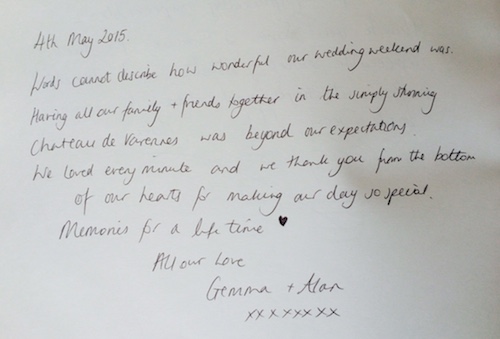 4th May 2015.
Words cannot describe how wonderful our wedding weekend was.
Having all our family + friends together in the simply stunning
Chateau de Varennes was beyond our expectations.
We loved every minute and we thank you from the bottom
of our hearts for making our day so special.
Memories for a life time ♥
All our Love
Gemma + Alan
xxxxxxxx